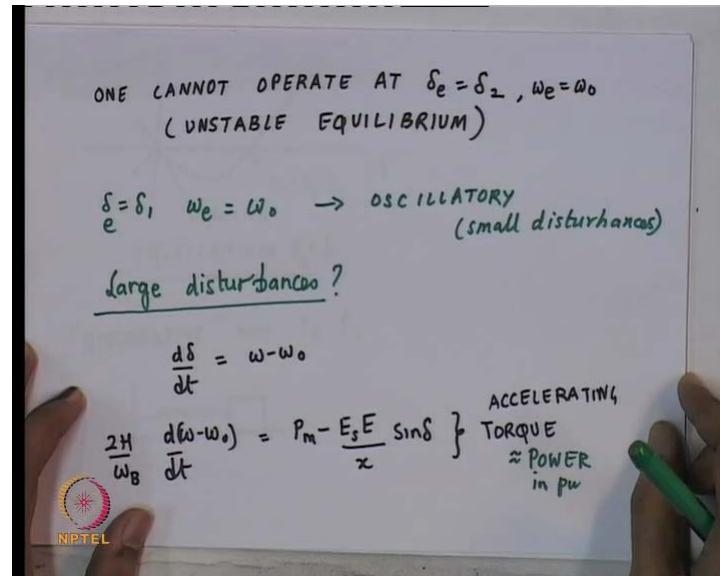 ONE CANNOT OPERATE AT δe = δ2 , ωe = ω0
(UNSTABLE EQUILIBRIUM)
δe = δ1 ωe = ω0 → OSCILLATORY
(small disturbances)
Large disturbances ?
dδ/dt = ω-ω0
2H/ωB d(ω-ω0)/dt = Pm - EsE/x sinδ } ACCELERATING
TORQUE
≈ POWER
in pu
NPTEL